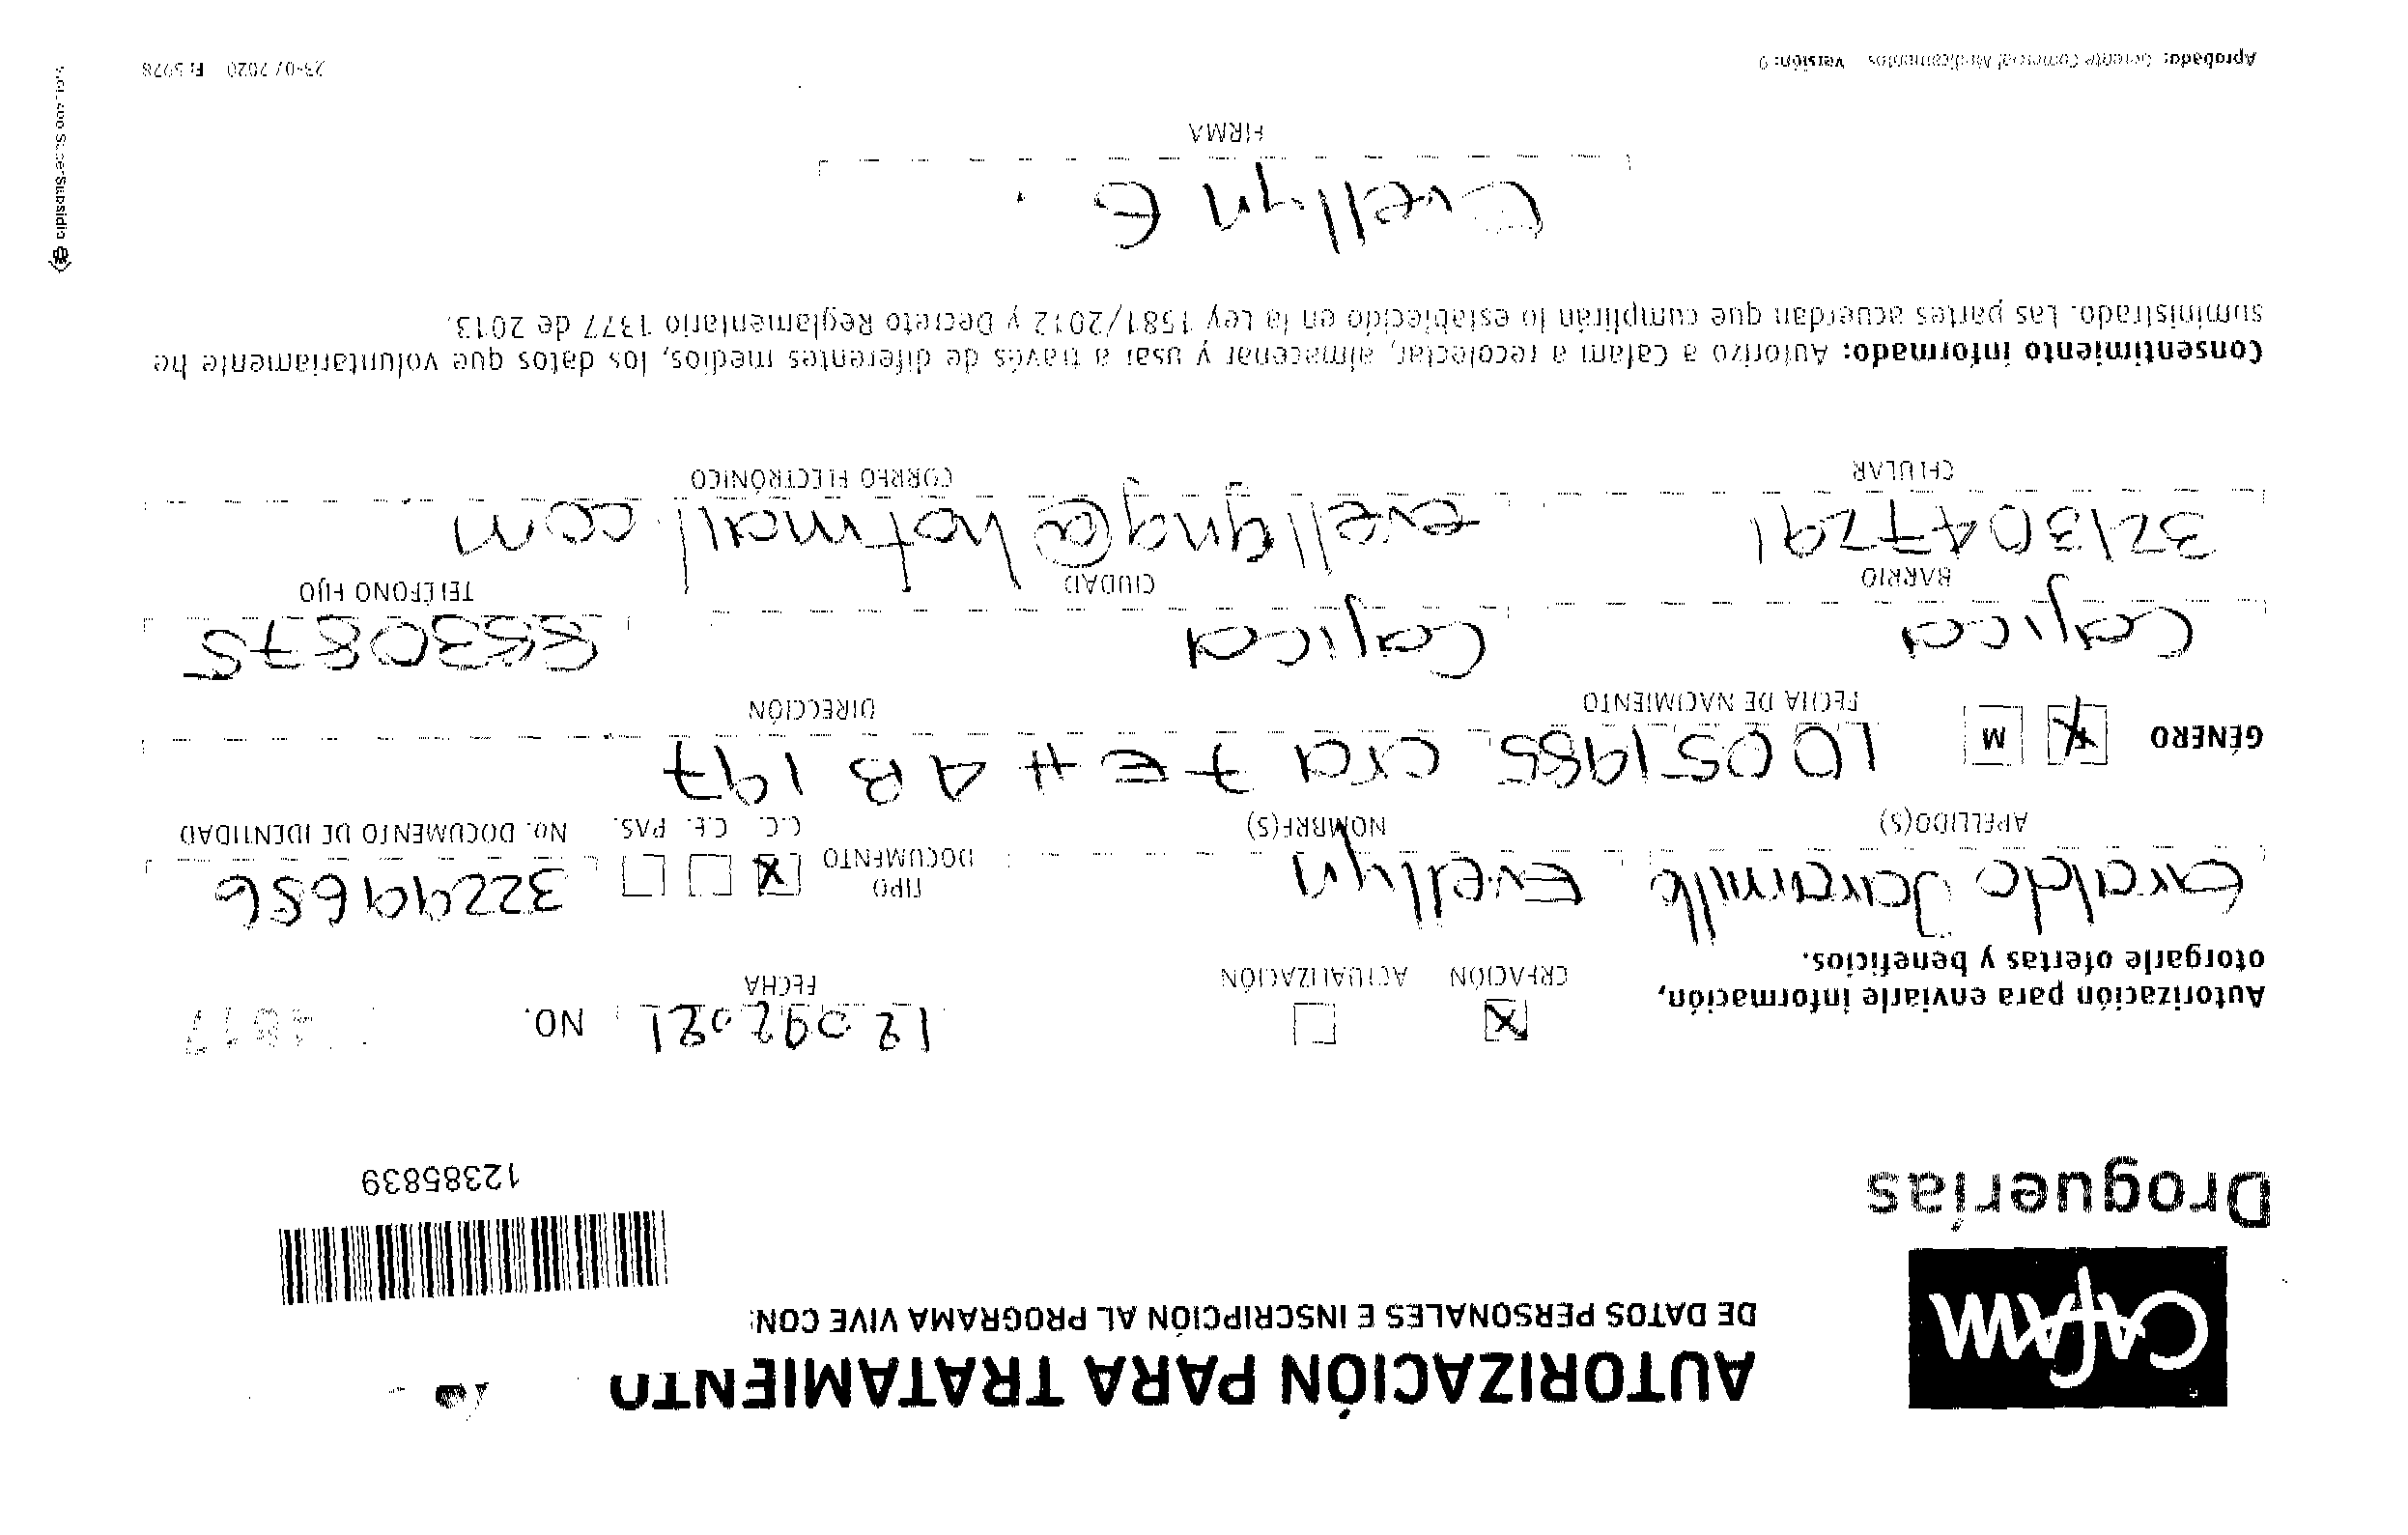 CAFAM
Droguerías
AUTORIZACIÓN PARA TRATAMIENTO
DE DATOS PERSONALES E INSCRIPCIÓN AL PROGRAMA VIVE CON:
12385839
Autorización para enviarle información,
otorgarle ofertas y beneficios.
CREACIÓN ACTUALIZACIÓN
12 09 2021 NO.
FECHA
Giraldo Jaramillo Evellyn TIPO DOCUMENTO X 32299656
APELLIDO(S) NOMBRE(S) C.C. C.E. PAS. No. DOCUMENTO DE IDENTIDAD
GÉNERO F M 10051985 cra 7 E # 4 B 197
FECHA DE NACIMIENTO DIRECCIÓN
Cajica Cajica 8830875
BARRIO CIUDAD TELÉFONO FIJO
3213047291 evellyng@hotmail.com
CELULAR CORREO ELECTRÓNICO
Consentimiento informado: Autorizo a Cafam a recolectar, almacenar y usar a través de diferentes medios, los datos que voluntariamente he
suministrado. Las partes acuerdan que cumplirán lo establecido en la Ley 1581/2012 y Decreto Reglamentario 1377 de 2013.
Evellyn G
FIRMA
Aprobado: Gerente Comercial Medicamentos Versión: 0
23-07 2020
SuperSubsidio